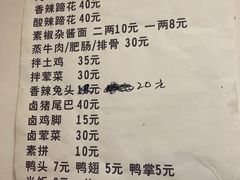 香辣蹄花40元
酸辣蹄花40元
素椒杂酱面 二两10元 一两8元
蒸牛肉/肥肠/排骨 30元
拌土鸡 35元
拌荤菜 30元
香辣兔头 20元
卤猪尾巴 40元
卤鸡脚 15元
卤荤菜 30元
素拼 10元
鸭头 7元 鸭翅 5元 鸭掌5元